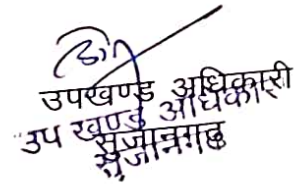 उपखण्ड अधिकारी
उप खण्ड अधिकारी
सुजानगढ
सुजानगढ